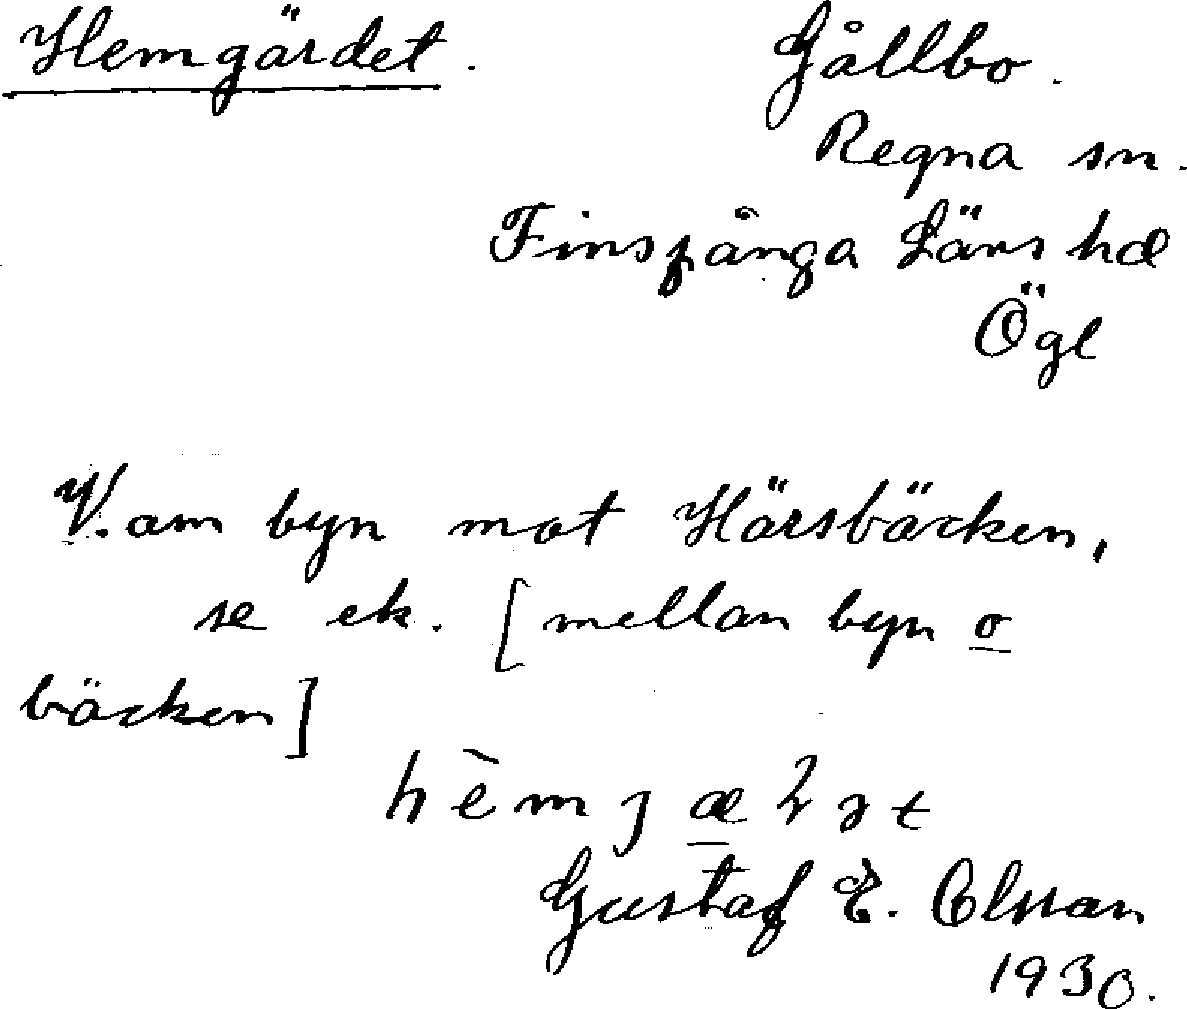 Hemgärdet. Gållbo.
Regna sn.
Finspånga Läns hd
Ögl
V. om byn mot Härsbäcken,
se ek. [mellan byn o
bäcken]
Gustaf E. Olsson
1930.